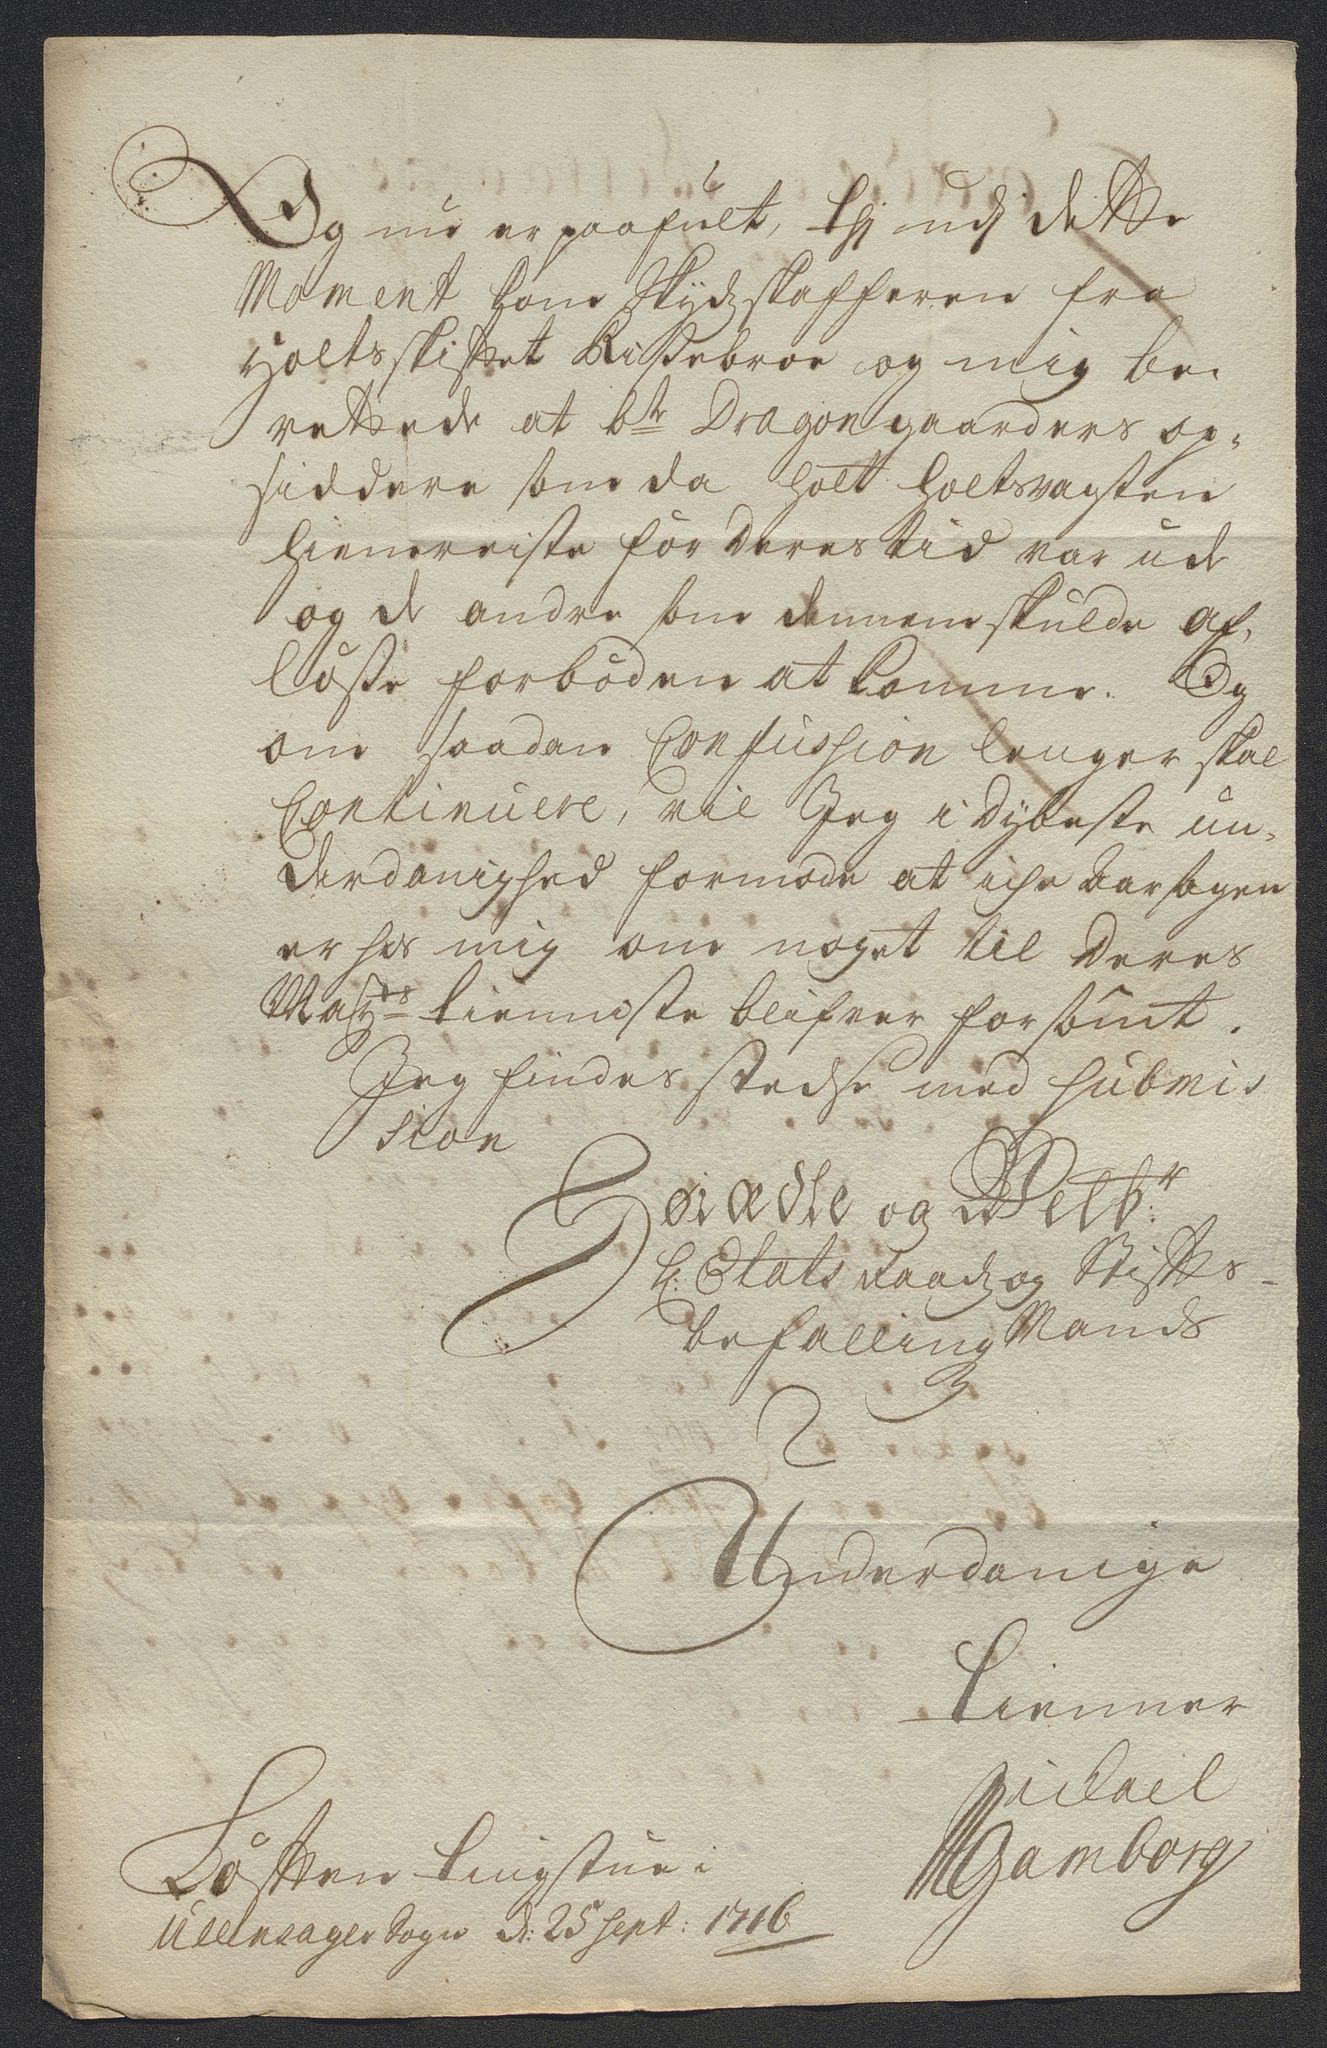 Og nu er paafuldt, thj udj dette
Moment kom Skydzskafferen fra
Holtsskiftet Risebroe og mig be-
rettede at bte Dragongaarders op-
siddere som da holt holtsvagten
hiemreiste for deres tid var ude
og de andre som dennem skulde af-
løsse forbøden at komme. Og
om saadan Confussion lenger skal
Continuere, vil Jeg i dybeste un-
derdanighed formode at iche aarsagen
er hos mig om noget til Deres
Mayts tienniste blifver forsømt.
Jeg findes stedse med submis
sion
Høiædle og Welbr
H: Etatsraadz og Stifts-
befallingMands
Underdanige
tienner
Michael
Gamborg
Løfften tingstue i
Ullensager Sogn d: 25 Sept: 1716